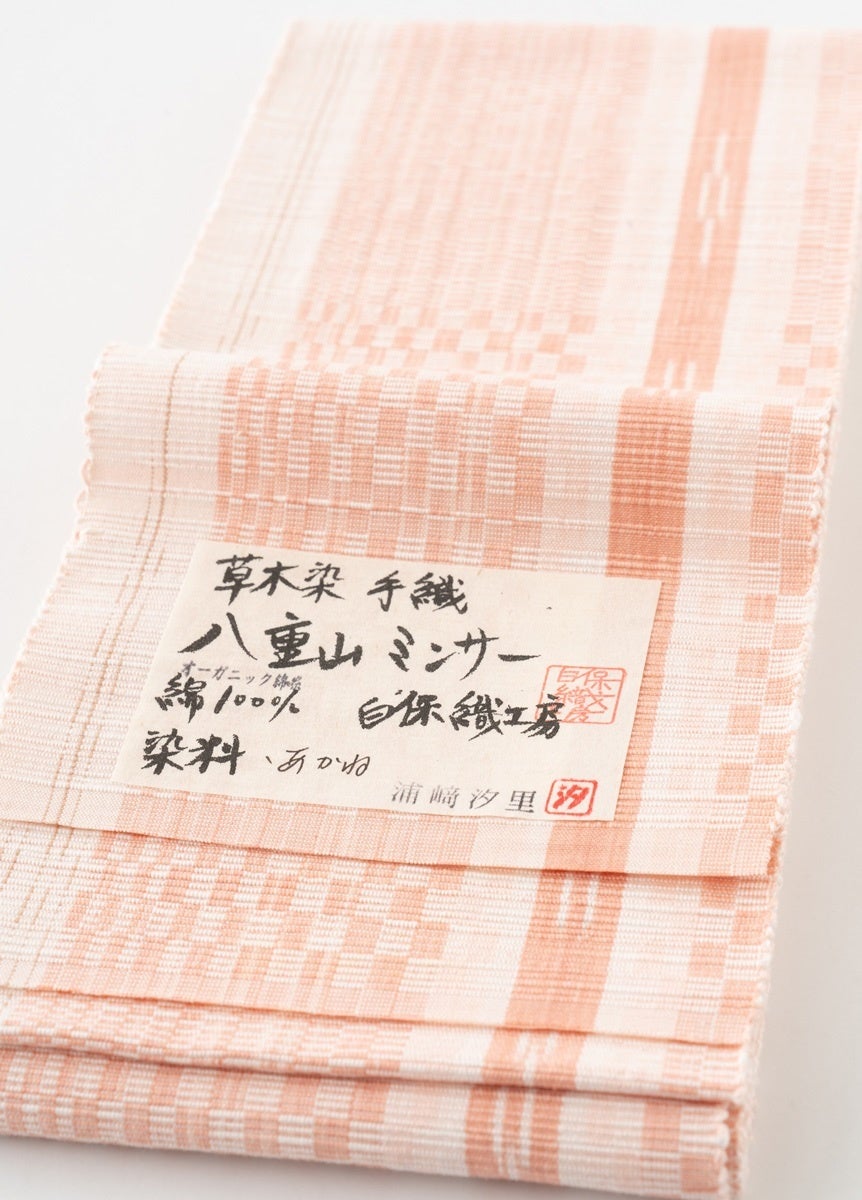 草木染 手織
八重山 ミンサー
オーガニック綿糸
綿100%
白保織工房
白保織工房
染料、あかね
浦﨑汐里
汐